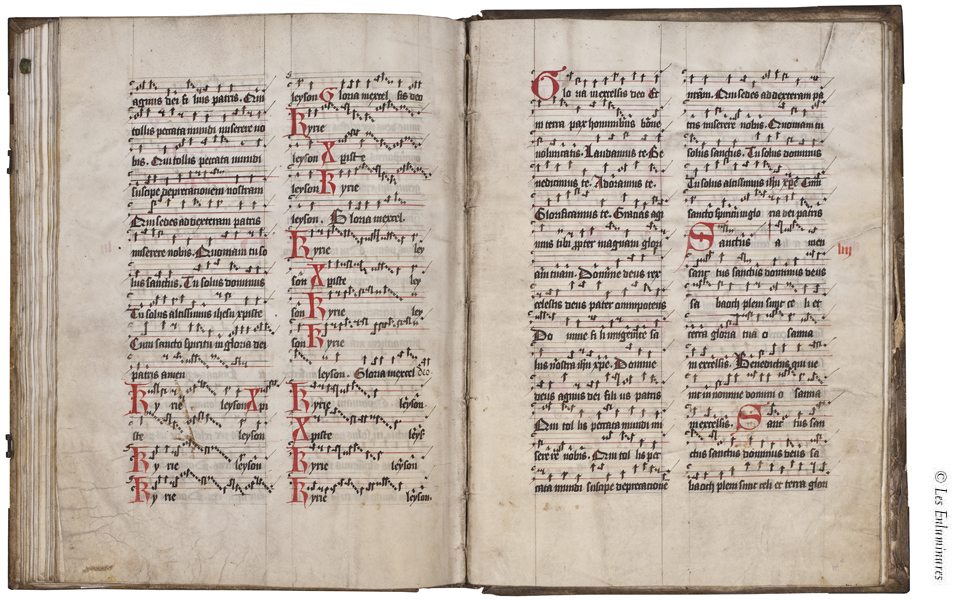 agnus dei fi lius patris. Qui
tollis peccata mundi miserere no
bis. Qui tollis peccata mundi
suscipe deprecationem nostram
Qui sedes ad dexteram patris
miserere nobis. Quoniam tu so
lus sanctus. Tu solus dominus
Tu solus altissimus ihesu xpiste
Cum sancto spiritu in gloria dei
patris amen
Ky rie leyson Xpi
ste leyson
Ky rie leyson
Ky rie
leyson Gloria in excel sis deo
Kyrie
leyson Xpiste
leyson Kyrie
leyson. Gloria in excel.
Kyrie ley
son Xpiste ley
son Kyrie ley
son Kyrie
leyson. Gloria in excel deo
Kyrie leyson
Xpiste leyson
Kyrie leyson
Kyrie leyson.
Glo ria in excelsis deo Et
in terra pax hominibus bone
voluntatis. Laudamus te. Be
nedicimus te. Adoramus te.
Glorificamus te. Gracias agi
mus tibi ppter magnam glori
am tuam. Domine deus rex
celestis deus pater omnipotens
Do mine fi li unigenite
deus agnus dei fili us patris
Qui tol lis peccata mundi mi
serere nobis. Qui tol lis pec
cata mundi suscipe deprecatione
nram. Qui sedes ad dexteram pa
tris miserere nobis. Quoniam tu
solus sanctus. Tu solus dominus
Tu solus altissimus ihu xpe Cum
sancto spiritu in glo ria dei patris
Sanctus a men
sanc tus sanctus dominus deus
sa baoth pleni sunt ce li et
terra gloria tua o sanna
in excelsis. Benedictus qui ve
nit in nomine domini o sanna
in excelsis. Sanc tus san
ctus sanctus dominus deus sa
baoth pleni sunt celi et terra glori
iiij
© Les Enluminures